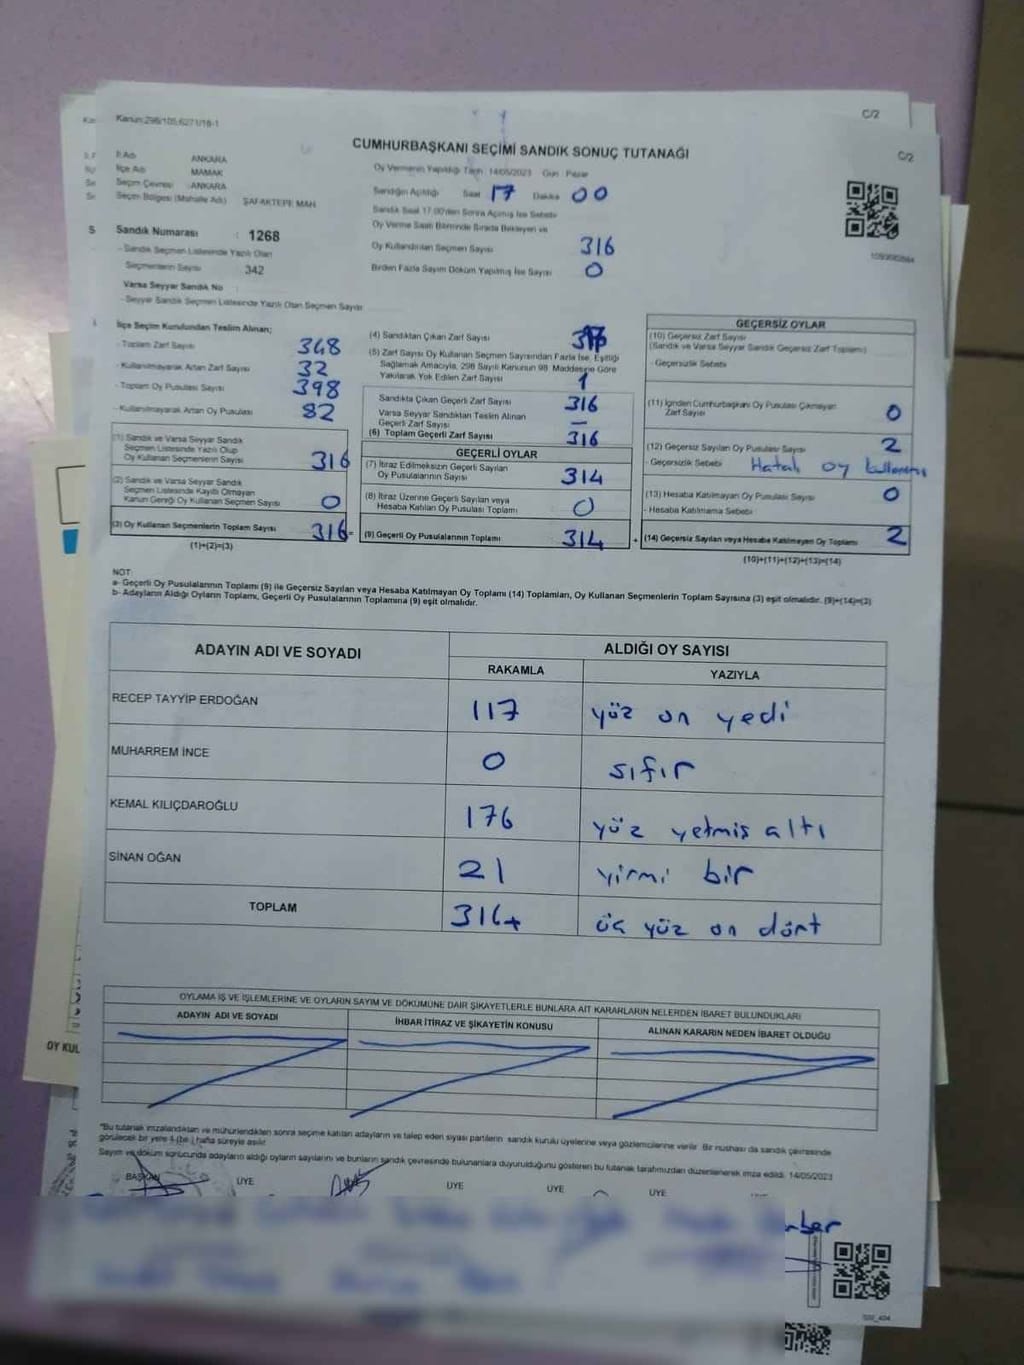 Kanun:298/105,6271/18-1
C/2
C/2
CUMHURBAŞKANI SEÇİMİ SANDIK SONUÇ TUTANAĞI
İl Adı ANKARA
İlçe Adı MAMAK
Seçim Çevresi ANKARA
Seçim Bölgesi (Mahalle Adı) ŞAFAKTEPE MAH.
Oy Vermenin Yapıldığı Tarih 14/05/2023 Gün Pazar
Sandığın Açıldığı Saat 17 Dakika 00
Sandık Saat 17.00'den Sonra Açılmış İse Sebebi
Oy Verme Saati Bitiminde Sırada Bekleyen ve
Oy Kullandırılan Seçmen Sayısı 316
Birden Fazla Sayım Döküm Yapılmış İse Sayısı 0
Sandık Numarası : 1268
- Sandık Seçmen Listesinde Yazılı Olan
Seçmenlerin Sayısı 342
Varsa Seyyar Sandık No
- Seyyar Sandık Seçmen Listesinde Yazılı Olan Seçmen Sayısı
İlçe Seçim Kurulundan Teslim Alınan;
- Toplam Zarf Sayısı 348
- Kullanılmayarak Artan Zarf Sayısı 32
- Toplam Oy Pusulası Sayısı 398
- Kullanılmayarak Artan Oy Pusulası 82
(1) Sandık ve Varsa Seyyar Sandık
Seçmen Listesinde Yazılı Olup
Oy Kullanan Seçmenlerin Sayısı 316
(2) Sandık ve Varsa Seyyar Sandık
Seçmen Listesinde Kayıtlı Olmayan
Kanun Gereği Oy Kullanan Seçmen Sayısı 0
(3) Oy Kullanan Seçmenlerin Toplam Sayısı 316=
(1)+(2)=(3)
(4) Sandıktan Çıkan Zarf Sayısı
(5) Zarf Sayısı Oy Kullanan Seçmen Sayısından Fazla İse, Eşitliği
Sağlamak Amacıyla, 298 Sayılı Kanunun 98. Maddesine Göre
Yakılarak Yok Edilen Zarf Sayısı 1
Sandıkta Çıkan Geçerli Zarf Sayısı 316
Varsa Seyyar Sandıktan Teslim Alınan
Geçerli Zarf Sayısı –
(6) Toplam Geçerli Zarf Sayısı 316
GEÇERLİ OYLAR
(7) İtiraz Edilmeksizin Geçerli Sayılan
Oy Pusulalarının Sayısı 314
(8) İtiraz Üzerine Geçerli Sayılan veya
Hesaba Katılan Oy Pusulası Toplamı 0
(9) Geçerli Oy Pusulalarının Toplamı 314 +
GEÇERSİZ OYLAR
(10) Geçersiz Zarf Sayısı
(Sandık ve Varsa Seyyar Sandık Geçersiz Zarf Toplamı)
- Geçersizlik Sebebi
(11) İçinden Cumhurbaşkanı Oy Pusulası Çıkmayan
Zarf Sayısı 0
(12) Geçersiz Sayılan Oy Pusulası Sayısı 2
- Geçersizlik Sebebi Hatalı oy kullanımı
(13) Hesaba Katılmayan Oy Pusulası Sayısı 0
- Hesaba Katılmama Sebebi
(14) Geçersiz Sayılan veya Hesaba Katılmayan Oy Toplamı 2
(10)+(11)+(12)+(13)=(14)
NOT:
a- Geçerli Oy Pusulalarının Toplamı (9) ile Geçersiz Sayılan veya Hesaba Katılmayan Oy Toplamı (14) Toplamları, Oy Kullanan Seçmenlerin Toplam Sayısına (3) eşit olmalıdır. (9)+(14)=(3)
b- Adayların Aldığı Oyların Toplamı, Geçerli Oy Pusulalarının Toplamına (9) eşit olmalıdır.
ADAYIN ADI VE SOYADI
ALDIĞI OY SAYISI
RAKAMLA YAZIYLA
RECEP TAYYİP ERDOĞAN 117 yüz on yedi
MUHARREM İNCE 0 sıfır
KEMAL KILIÇDAROĞLU 176 yüz yetmiş altı
SİNAN OĞAN 21 yirmi bir
TOPLAM üç yüz on dört
OYLAMA İŞ VE İŞLEMLERİNE VE OYLARIN SAYIM VE DÖKÜMÜNE DAİR ŞİKAYETLERLE BUNLARA AİT KARARLARIN NELERDEN İBARET BULUNDUKLARI
ADAYIN ADI VE SOYADI İHBAR İTİRAZ VE ŞİKAYETİN KONUSU ALINAN KARARIN NEDEN İBARET OLDUĞU
*Bu tutanak imzalandıktan ve mühürlendikten sonra seçime katılan adayların ve talep eden siyasi partilerin sandık kurulu üyelerine veya gözlemcilerine verilir. Bir nushası da sandık çevresinde
görülecek bir yere 1 (bir) hafta süreyle asılır.
Sayım ve döküm sonucunda adayların aldığı oyların sayılarını ve bunların sandık çevresinde bulunanlara duyurulduğunu gösteren bu tutanak tarafımızdan düzenlenerek imza edildi. 14/05/2023
BAŞKAN ÜYE ÜYE ÜYE ÜYE
OY KUL